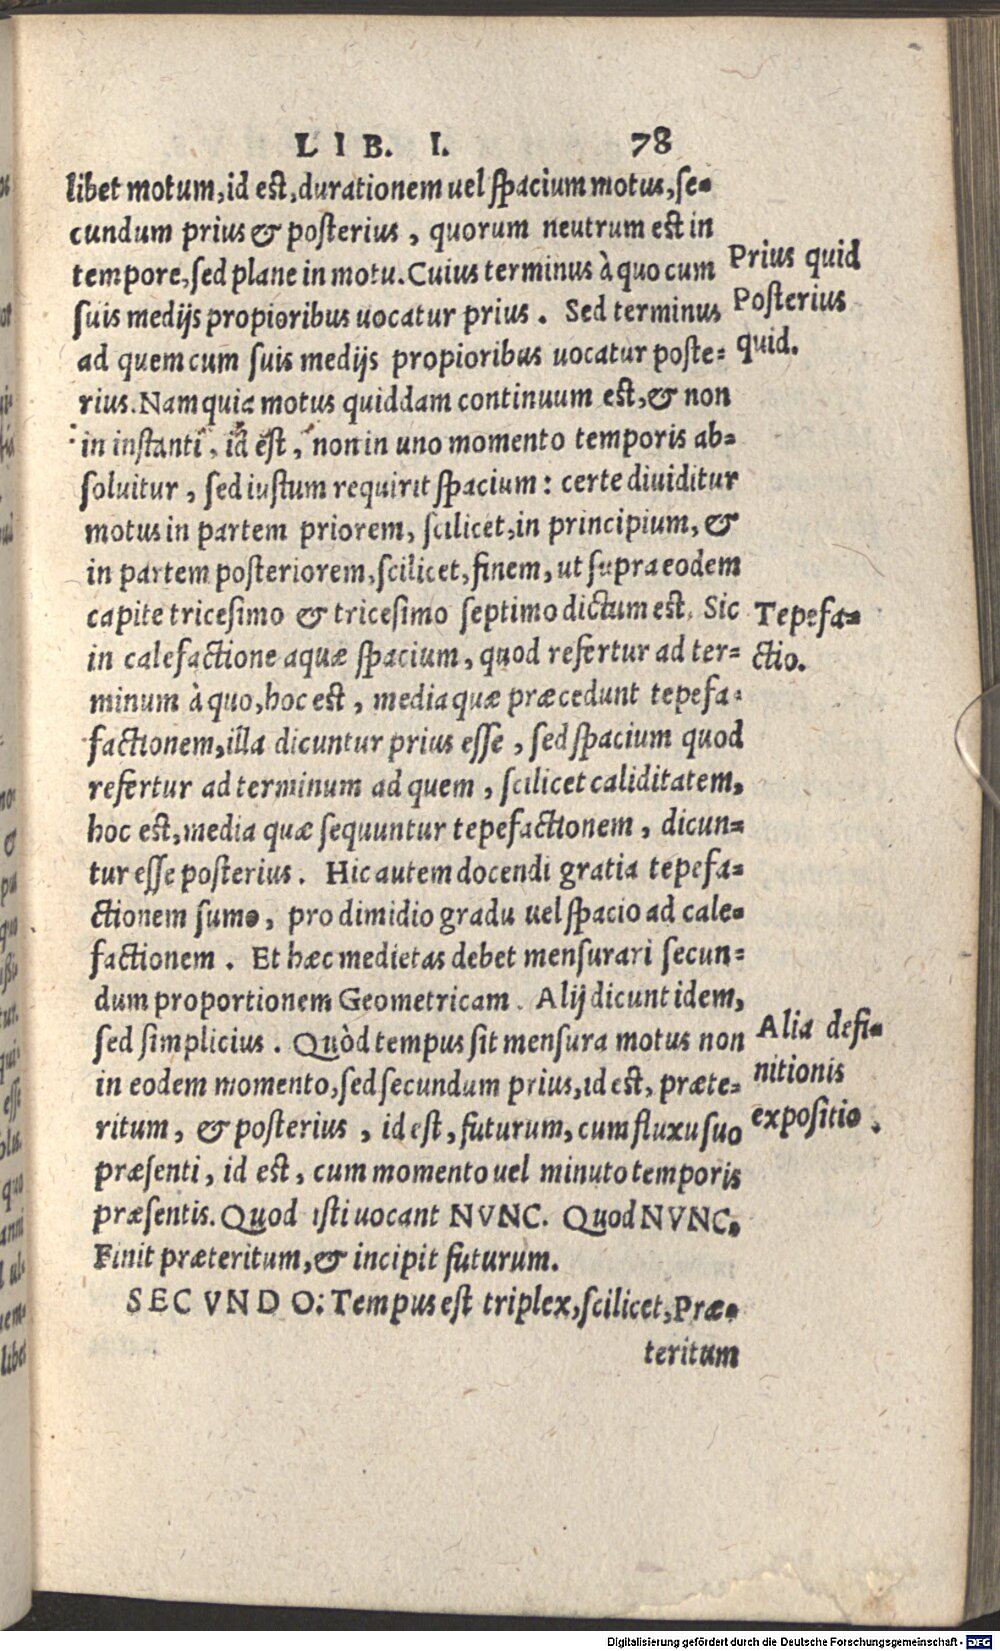 LIB. I. 78
libet motum, id est, durationem uel spacium motus, se-
cundum prius & posterius, quorum neutrum est in
tempore, sed plane in motu. Cuius terminus à quo cum
suis medijs propioribus uocatur prius. Sed terminus
ad quem cum suis medijs propioribus uocatur poste-
rius. Nam quia motus quiddam continuum est, & non
in instanti, id est, non in uno momento temporis ab-
soluitur, sed iustum requirit spacium: certe diuiditur
motus in partem priorem, scilicet, in principium, &
in partem posteriorem, scilicet, finem, ut supra eodem
capite tricesimo & tricesimo septimo dictum est. Sic
in calefactione aquæ spacium, quod refertur ad ter-
minum à quo, hoc est, media quæ præcedunt tepefa-
factionem, illa dicuntur prius esse, sed spacium quod
refertur ad terminum ad quem, scilicet caliditatem,
hoc est, media quæ sequuntur tepefactionem, dicun-
tur esse posterius. Hic autem docendi gratia tepefa-
ctionem sumo, pro dimidio gradu uel spacio ad cale-
factionem. Et hæc medietas debet mensurari secun-
dum proportionem Geometricam. Alij dicunt idem,
sed simplicius. Quòd tempus sit mensura motus non
in eodem momento, sed secundum prius, id est, præte-
ritum, & posterius, id est, futurum, cum fluxu suo
præsenti, id est, cum momento uel minuto temporis
præsentis. Quod isti uocant NVNC. Quod NVNC.
Finit præteritum, & incipit futurum.
SECVNDO: Tempus est triplex, scilicet, Præ-
teritum
Prius quid
Posterius
quid.
Tepefa-
ctio.
Alia defi-
nitionis
expositio.
Digitalisierung gefördert durch die Deutsche Forschungsgemeinschaft - DFG